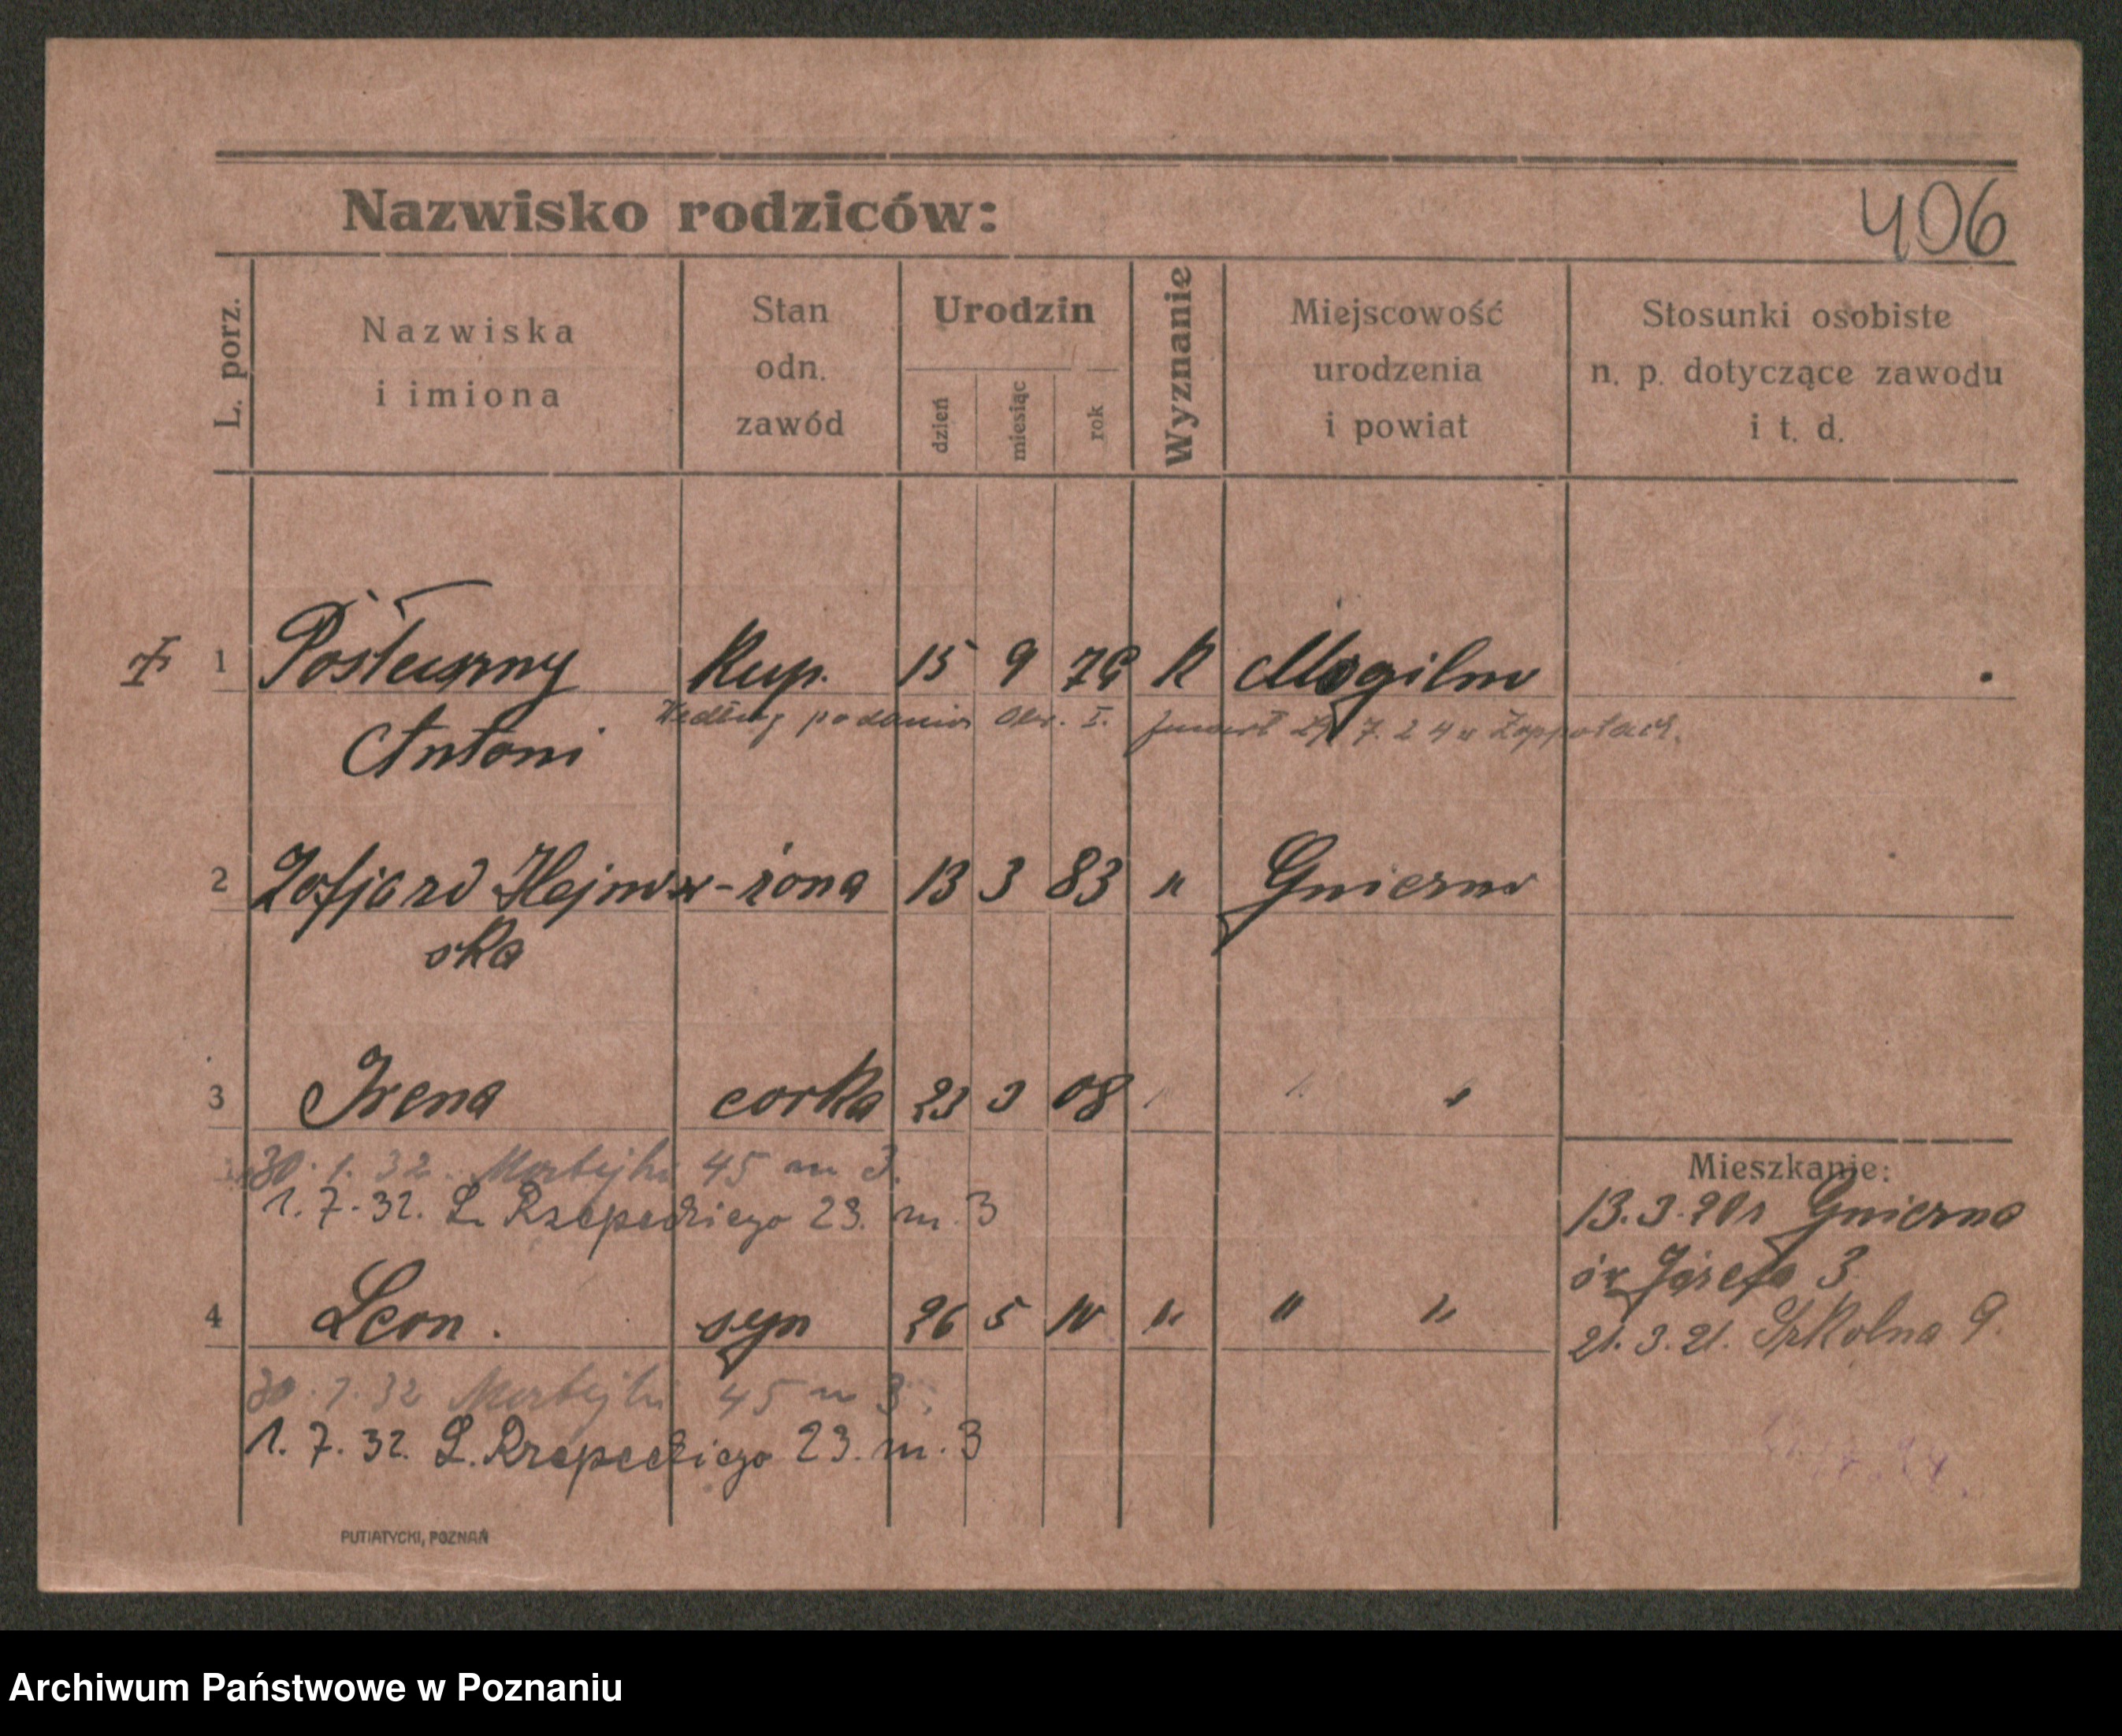 Nazwisko rodziców:
406
L. porz.
Nazwiska
i imiona
Stan
odn.
zawód
Urodzin
dzień
miesiąc
rok
Wyznanie
Miejscowość
urodzenia
i powiat
Stosunki osobiste
n. p. dotyczące zawodu
i t. d.
1 Posłuszny Kup. 15 9 76 K Mogilno
Według podania Obw. I. zmarł 7. 24 w Zoppotach.
Antoni
2 Zofja zd Hejnow- żona 13 3 83 " Gniezno
ska
3 Irena corka 23 3 08 " " "
30. 1. 32 Matejki 45 m 3.
1. 7. 32. L. Rzepeckiego 23. m. 3
4 Leon. syn 26 5 10 " " "
30. 1. 32 Matejki 45 m 3.
1. 7. 32. L. Rzepeckiego 23. m. 3
Mieszkanie:
13. 3. 20r Gniezno
św Józefa 3
21. 3. 21. Szkolna 9.
PUTIATYCKI, POZNAŃ
Archiwum Państwowe w Poznaniu